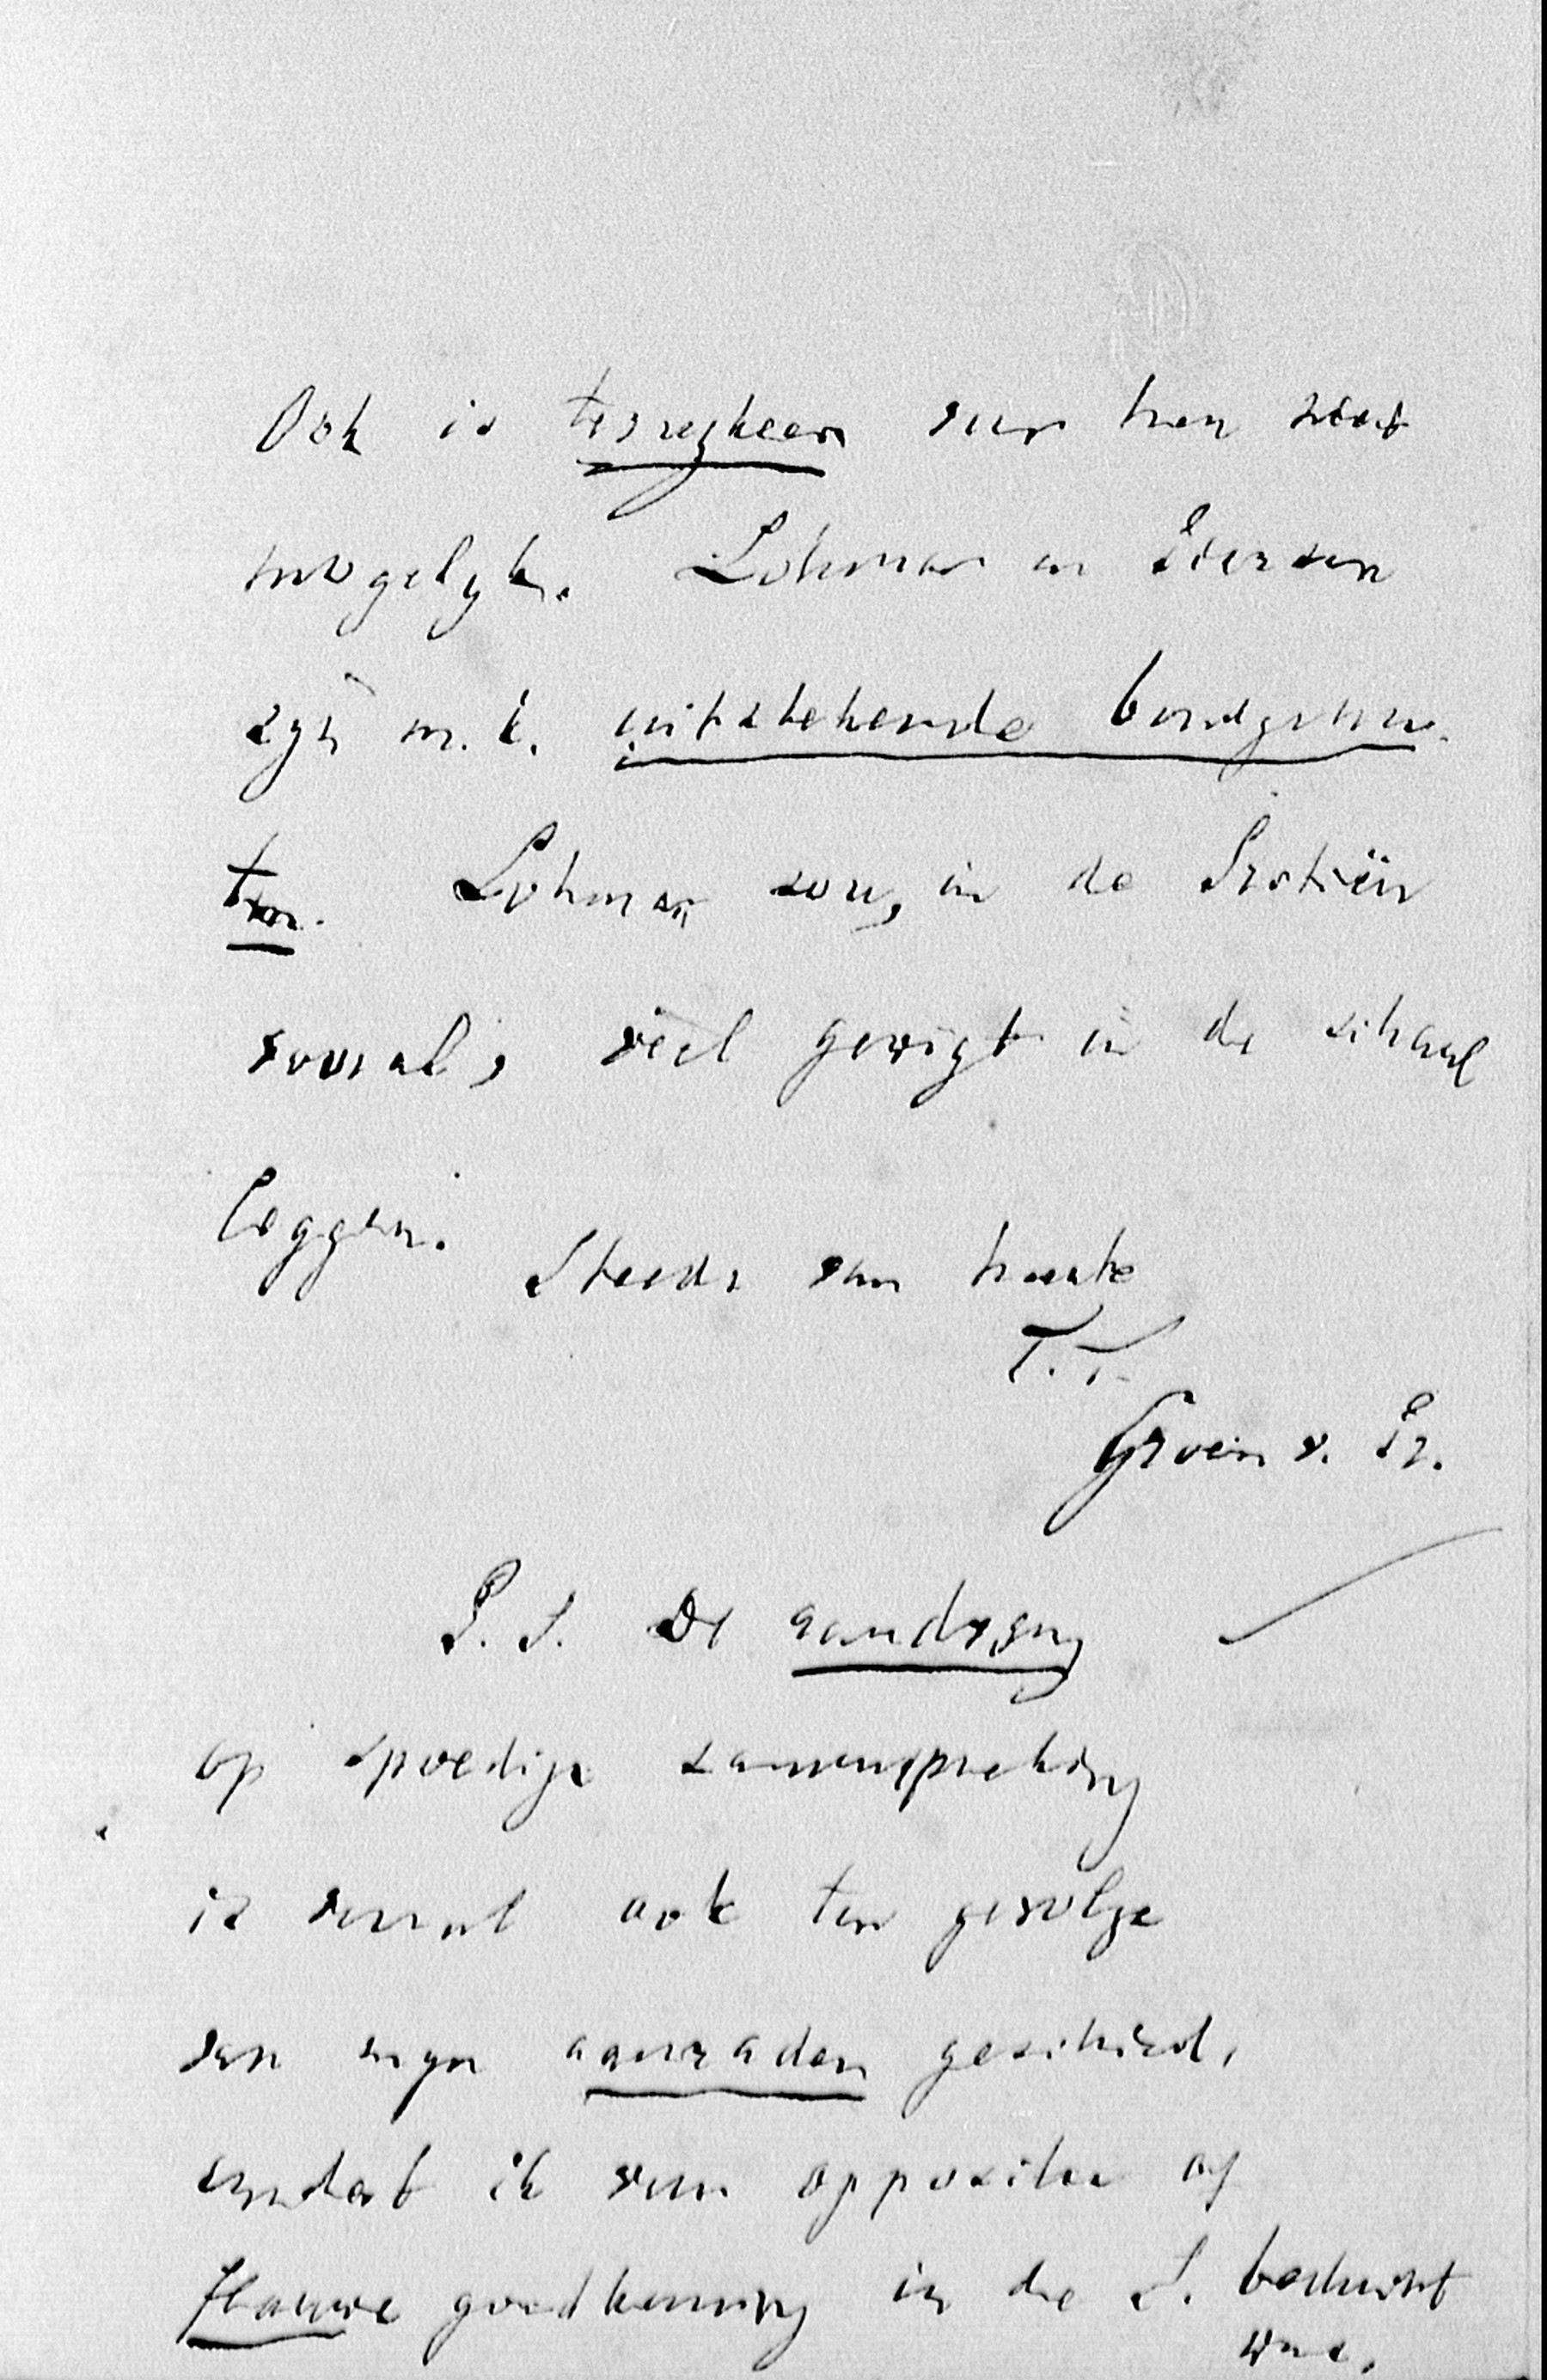 Ook is terugkeer van hen niet
mogelyk. Lohman en Pierson
zyn m. i. uitstekende bondgenoo-
ten. Lohman zou, in de Provincie
vooral, veel gewigt in de schaal
leggen.
Steeds van harte
T. T.
Groen v. Pr.
P. S. De aandrang
op spoedige zamenspreking
is vooral ook ten gevolge
van myn aanraden geschied,
omdat ik voor oppositie of
flauwe goedkeuring in de S. beducht
was.